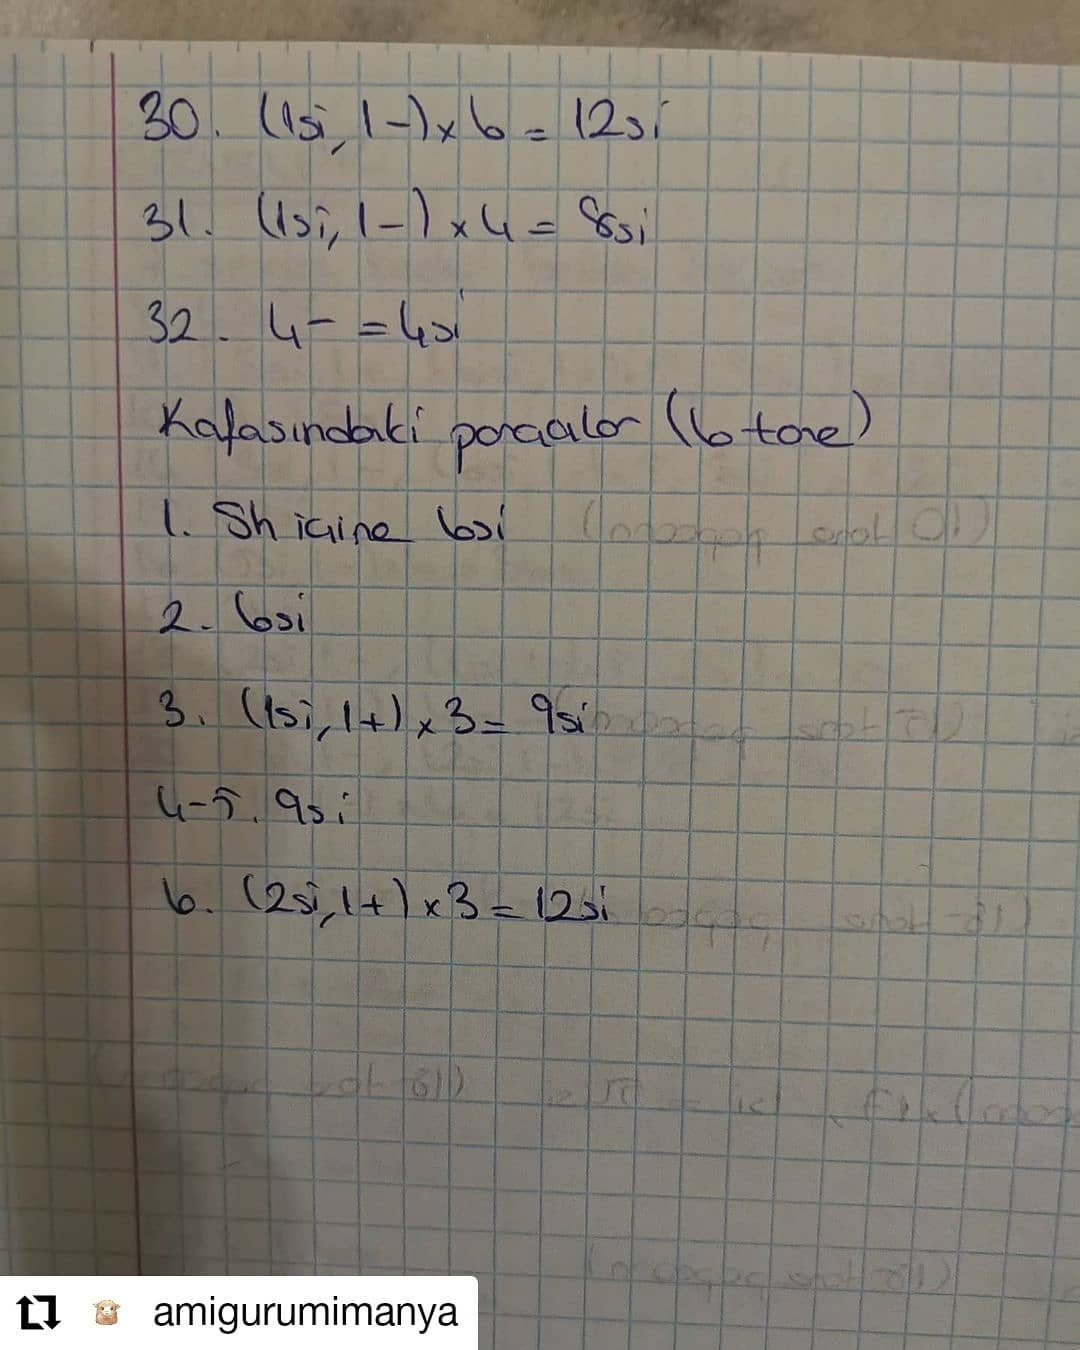 30. (1si, 1-)x6 = 12si
31. (1si, 1-)x4 = 8si
32. 4- = 4si
Kafasındaki parçalar (6 tane)
1. Sh içine 6si
2. 6si
3. (1si, 1+)x3= 9si
4-5. 9si
6. (2si, 1+)x3= 12si
amigurumimanya